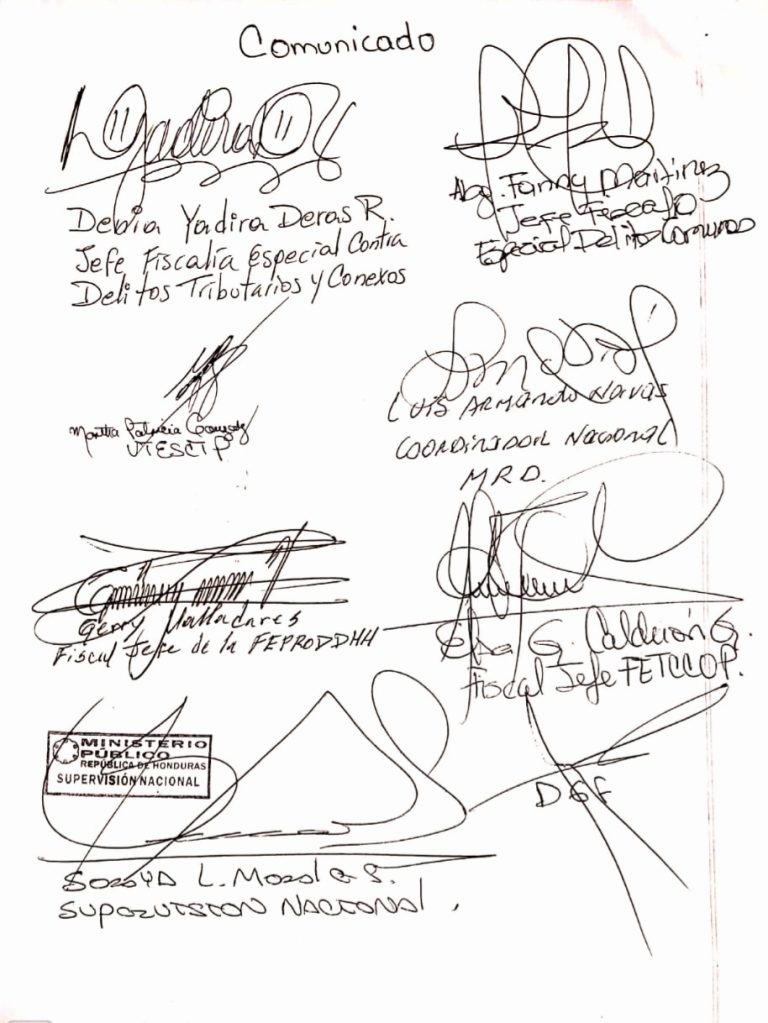 Comunicado
Debia Yadira Deras R.
Jefe Fiscalía Especial Contra
Delitos Tributarios y Conexos
Abg. Fanny Martinez
Jefe Fiscalía
Especial Delitos Comunes
Martha Patricia
UTESCTP
LUIS ARMANDO NAVAS
COORDINADOR NACIONAL
M.R.D.
Gerry Valladares
Fiscal Jefe de la FEPRODDHH
G. Calderón G.
Fiscal Jefe FETCCOP.
MINISTERIO
PÚBLICO
REPÚBLICA DE HONDURAS
SUPERVISIÓN NACIONAL
DGF
SORAYA L. Morales.
SUPERVISION NACIONAL.